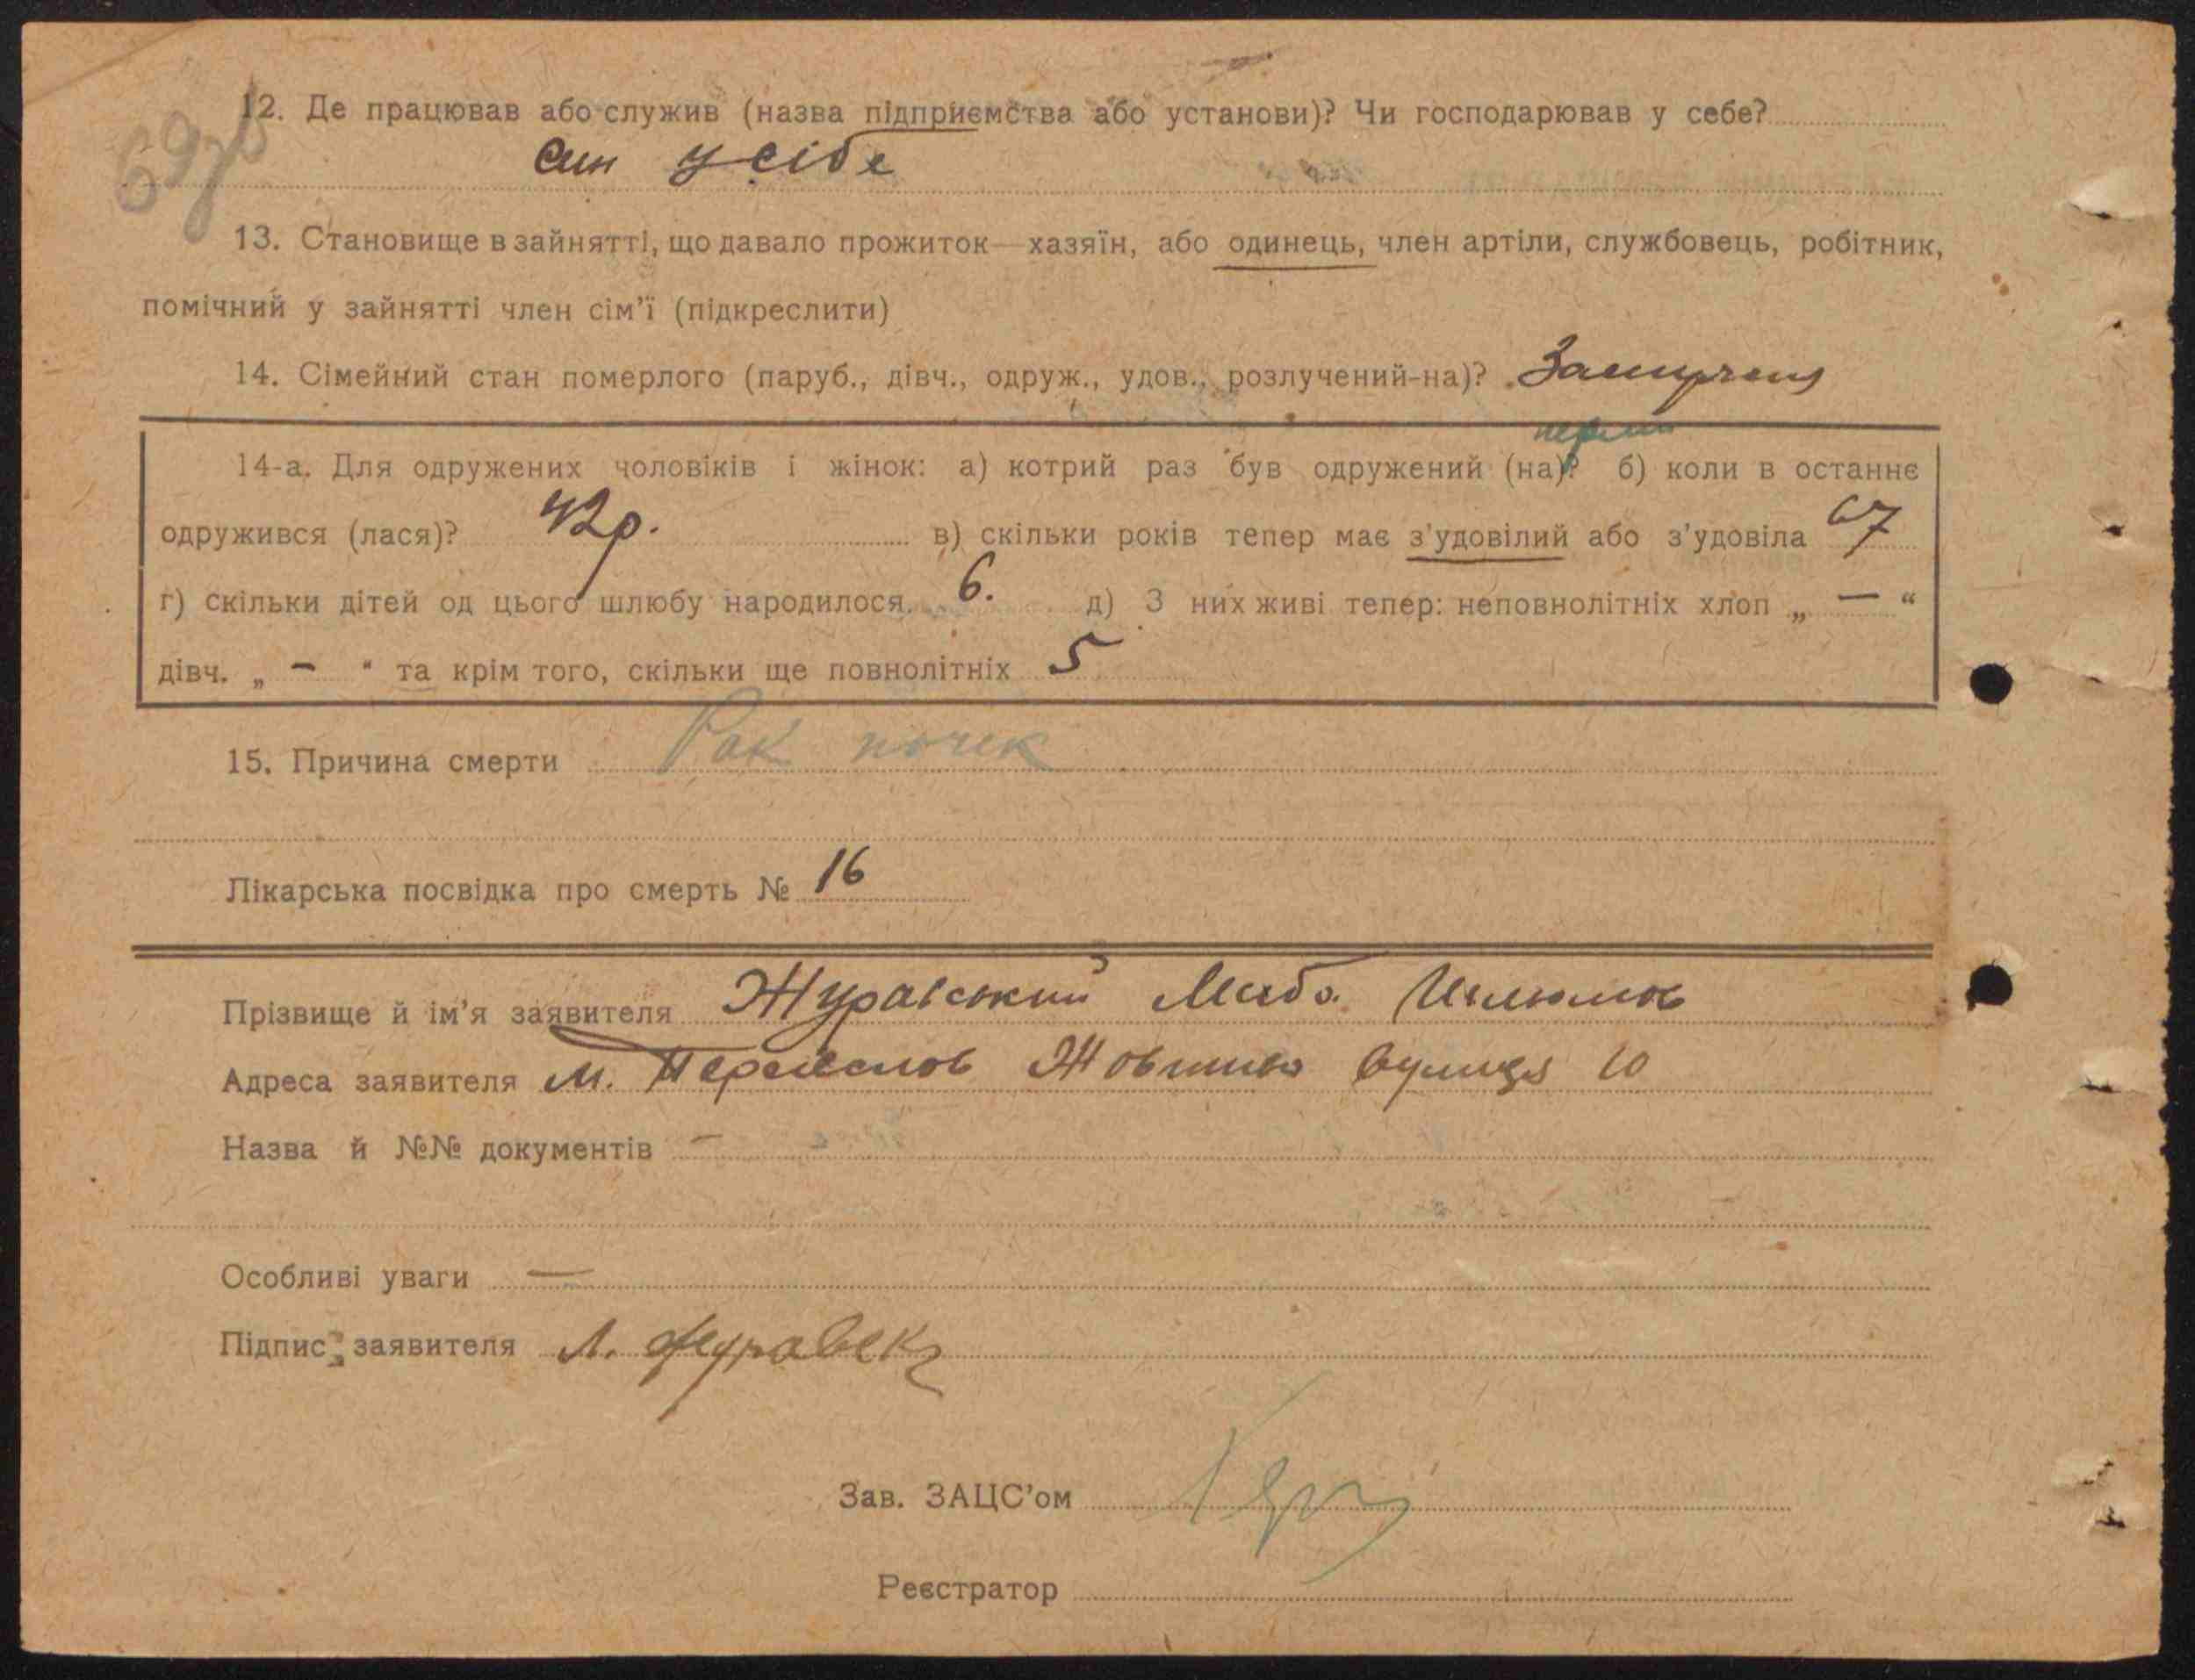 12. Де працював або служив (назва підприємства або установи)? Чи господарював у себе?
69зв
син у сібе
13. Становище в зайнятті, що давало прожиток—хазяїн, або одинець, член артіли, службовець, робітник,
помічний у зайнятті член сім'ї (підкреслити)
14. Сімейний стан померлого (паруб., дівч., одруж., удов., розлучений-на)?
14-а. Для одружених чоловіків і жінок: а) котрий раз був одружений (на)? б) коли в останнє
одружився (лася)? 42р. в) скільки років тепер має з'удовілий або з'удовіла 67
г) скільки дітей од цього шлюбу народилося 6. д) З них живі тепер: неповнолітніх хлоп „ — “
дівч. „ — “ та крім того, скільки ще повнолітніх 5
15. Причина смерти Рак почек
Лікарська посвідка про смерть № 16
Прізвище й ім'я заявителя Журавський
Адреса заявителя м. вулиця 10
Назва й №№ документів —
Особливі уваги —
Підпис заявителя Л.
Зав. ЗАЦС'ом
Реєстратор